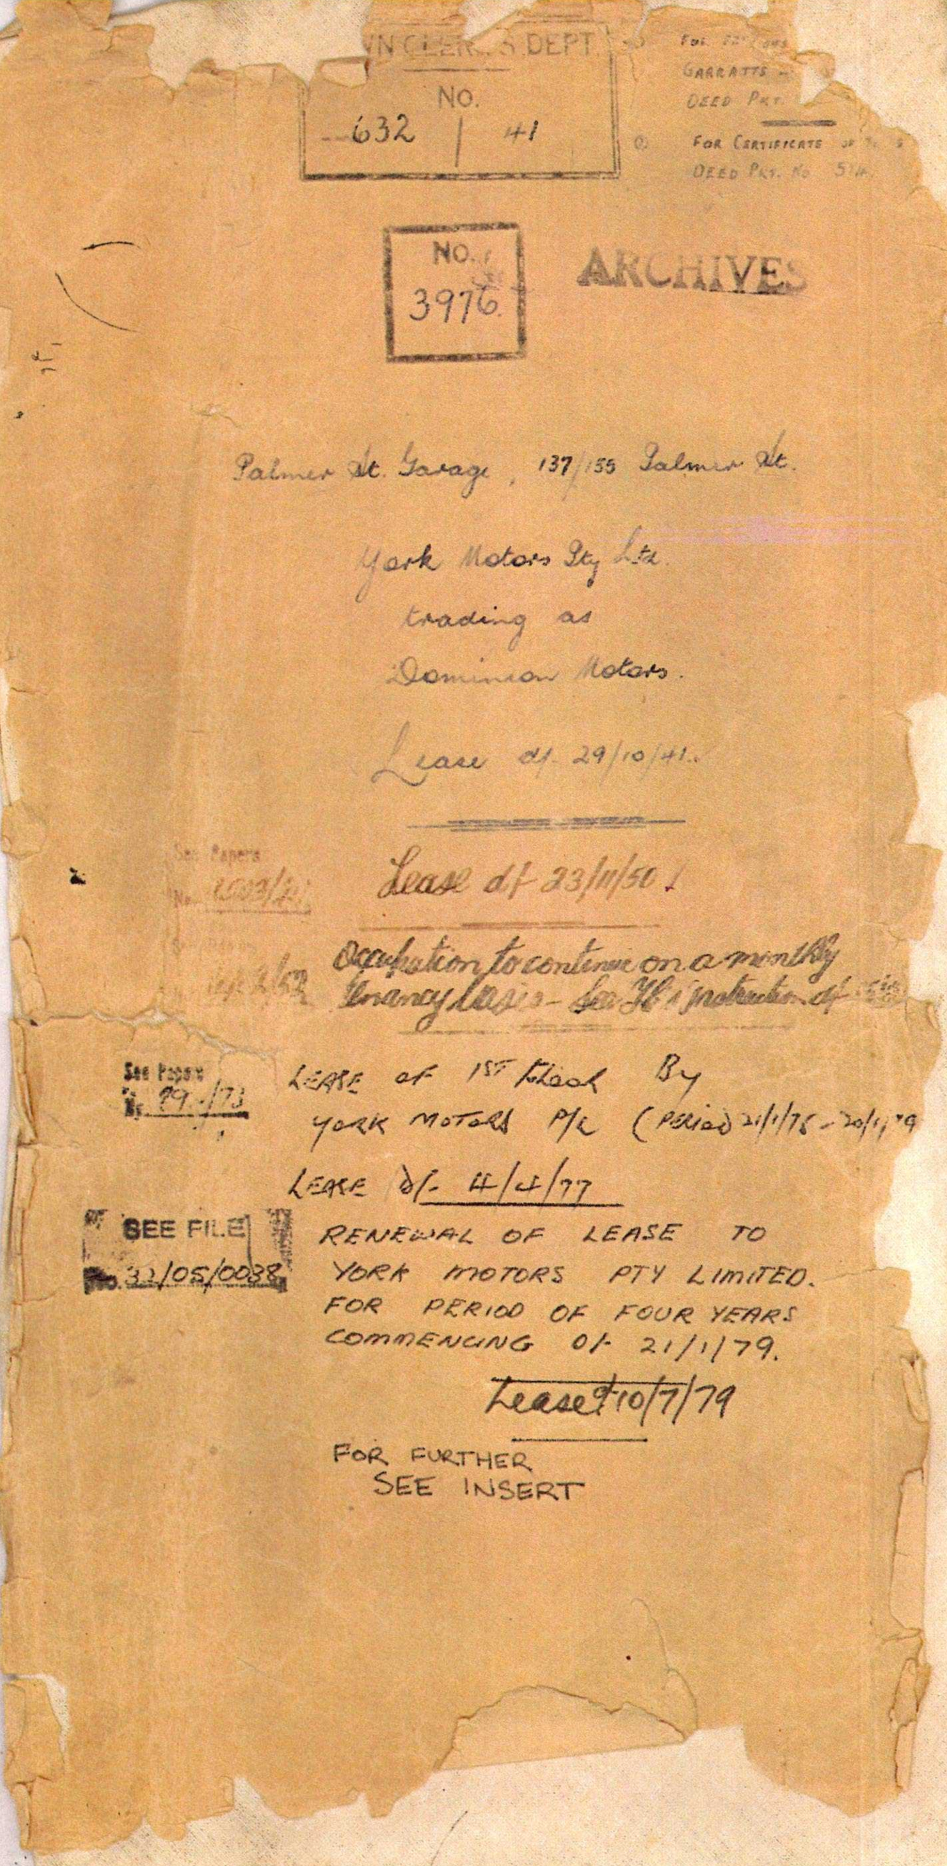 NO.
632 | 41
GARRATTS
DEED PKT.
FOR CERTIFICATE OF
DEED PKT. No 514
NO.
3976
ARCHIVES
Palmer St. Garage, 137/155 Palmer St.
York Motors Pty Ltd.
trading as
Dominion Motors.
Lease d/- 29/10/41.
See Papers
No.
Lease d/- 23/11/50.
Occupation to continue on a monthly
tenancy basis - See instruction d/-
LEASE OF 1ST Floor By
See Papers
No.
YORK MOTORS P/L (Period 21/1/78 - 20/1/79
LEASE D/- 4/4/77
SEE FILE
No. 32/05/0038
RENEWAL OF LEASE TO
YORK MOTORS PTY LIMITED.
FOR PERIOD OF FOUR YEARS
COMMENCING 0/- 21/1/79.
Lease d/- 10/7/79
FOR FURTHER
SEE INSERT